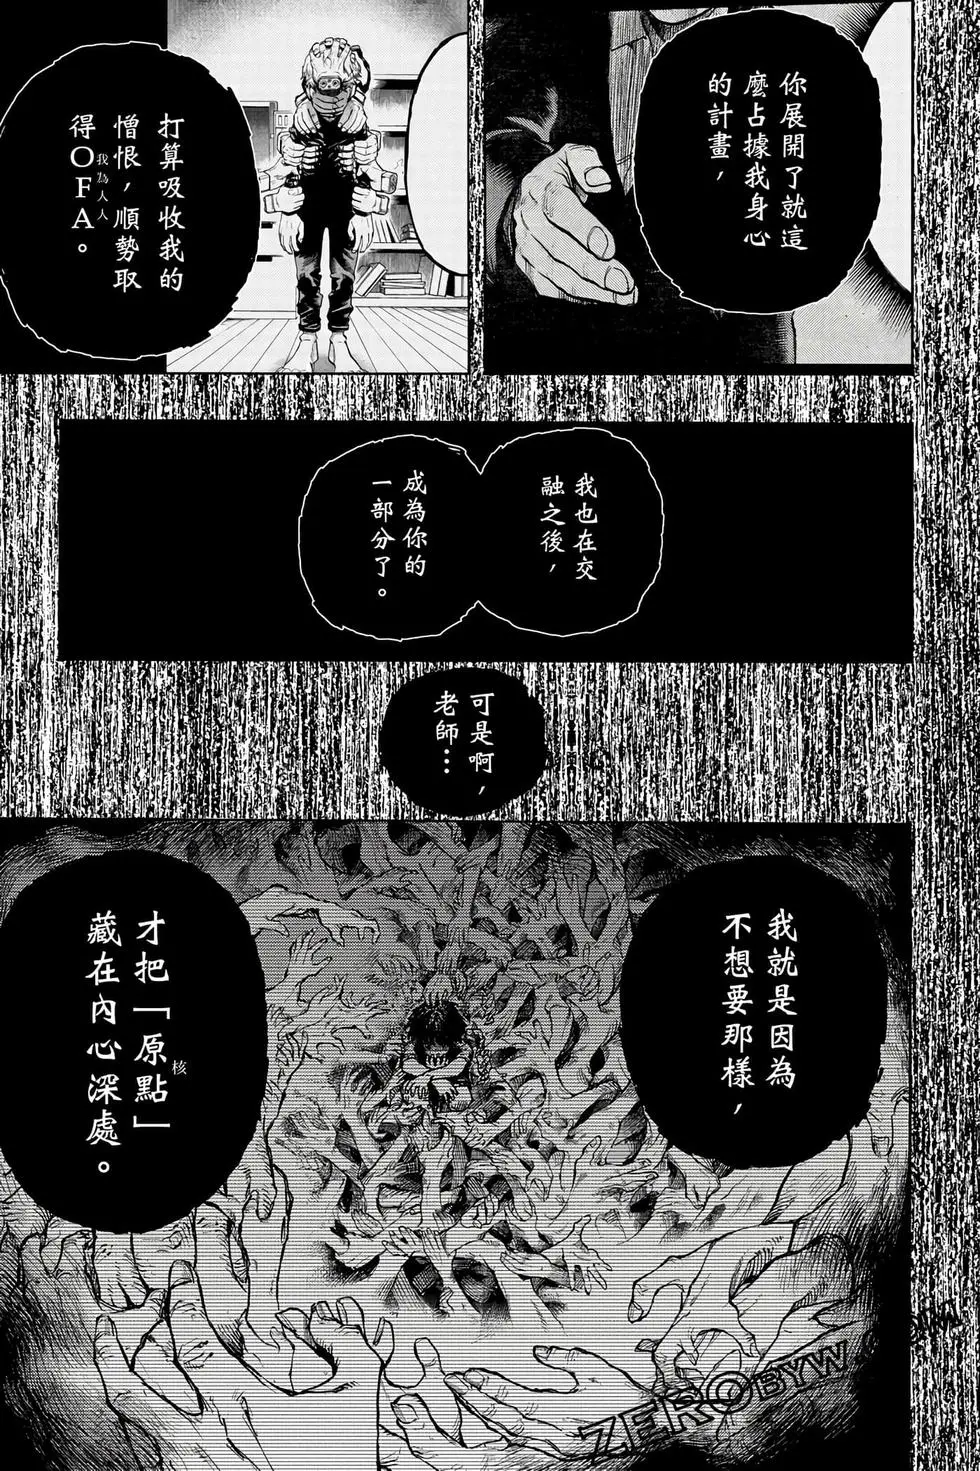 你展開了就這
麼占據我身心
的計畫，
打算吸收我的
憎恨，順勢取
得OFA。
我為人人
我也在交
融之後，
成為你的
一部分了。
可是啊，
老師…
我就是因為
不想要那樣，
才把「原點」
核
藏在內心深處。
ZEROBYW